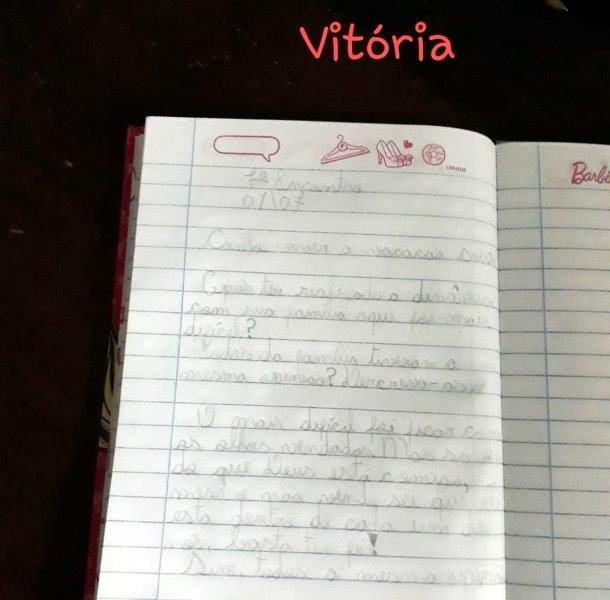 Vitória
©Mattel
Barbi
1º Encontro
01/07
Como viver a vocação
Após ter realizado a dinâmica
com sua família o que foi mais
difícil?
Todos da família tiveram a
mesma opinião?
O mais difícil foi ficar com
os olhos vendados. Mas
do que Deus está
não
está dentro de cada um de
nós, basta ter fé!
Sim, todos a mesma